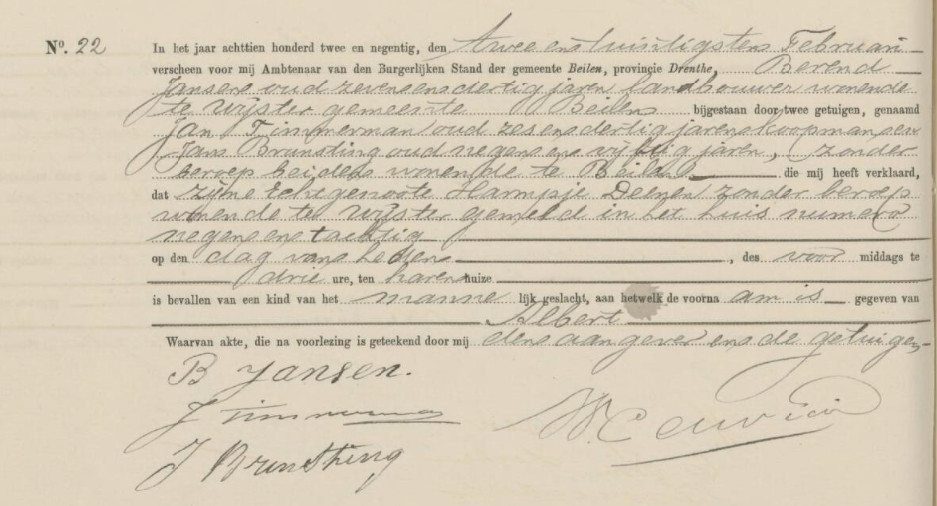 No. 22
In het jaar achttien honderd twee en negentig, den twee en twintigsten Februari
verscheen voor mij Ambtenaar van den Burgerlijken Stand der gemeente Beilen, provincie Drenthe, Berend
Jansen oud zevenendertig jaren landbouwer wonende
te Wijster gemeente Beilen bijgestaan door twee getuigen, genaamd
Jan Timmerman oud zesendertig jaren koopman en
Jans Brunsting oud negen en vijftig jaren, zonder
beroep beiden wonende te Beilen die mij heeft verklaard,
dat zijne Echtgenoote Harmpje Deenen zonder beroep
wonende te Wijster gemeld in het huis numero
negen en tachtig
op den dag van heden, des voor middags te
drie ure, ten haren huize
is bevallen van een kind van het manne lijk geslacht, aan hetwelk de voorna am is gegeven van
Albert
Waarvan akte, die na voorlezing is geteekend door mij den aangever en de getuigen
B Jansen.
J Timmerman
J Brunsting